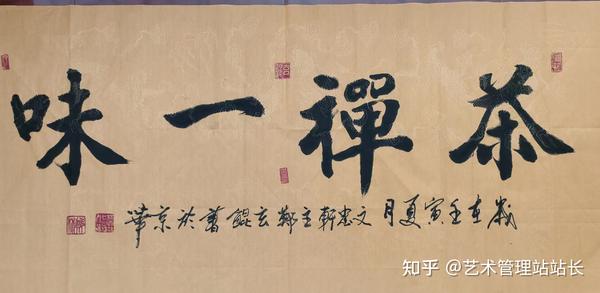 茶禪一味
歲在壬寅夏月文忠軒主鄭玄鯤書於京華
知乎 @艺术管理站站长